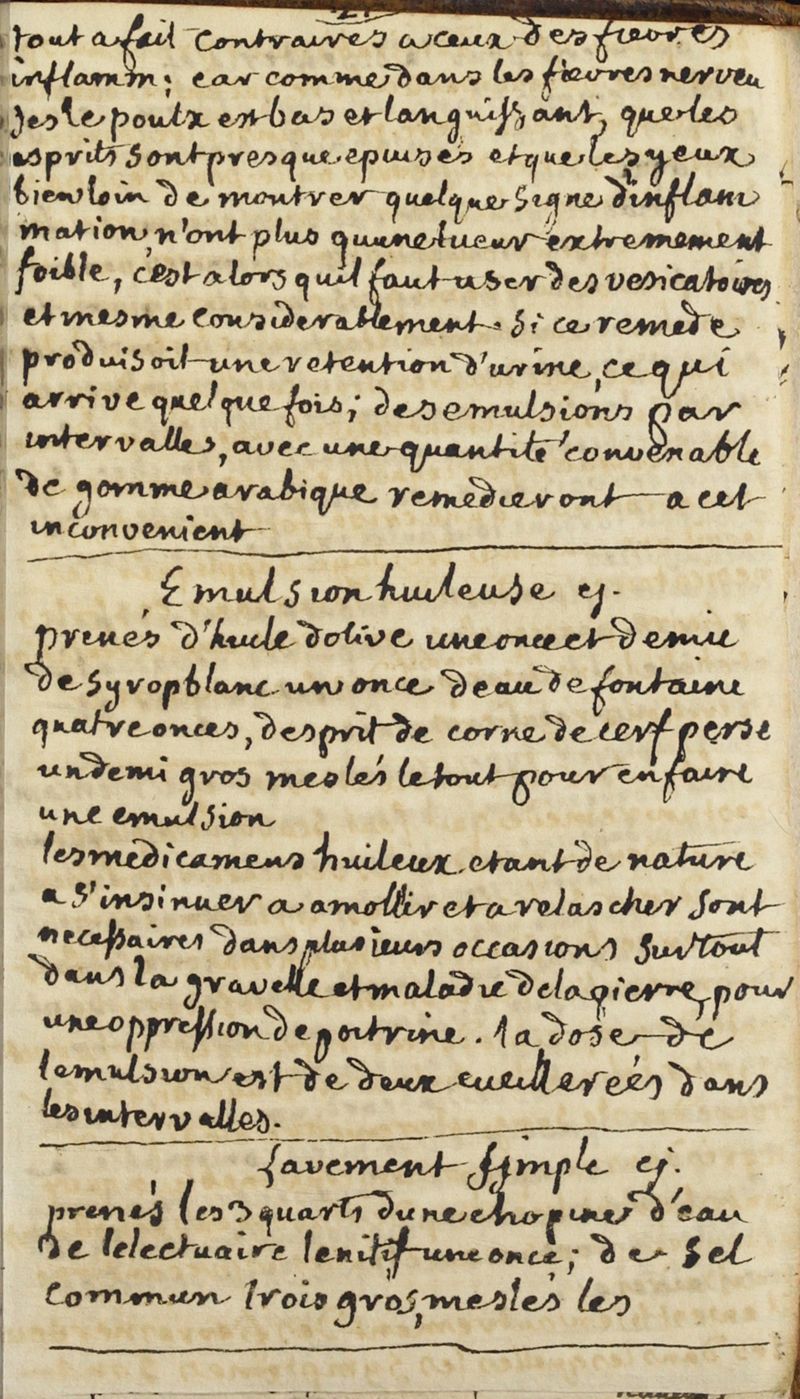 tout a fait contraires a ceux des fievres
inflamm: car comme dans les fievres nerveu
ses le poulx est bas et languissant, que les
esprits sont presque epuisés et que les yeux
bien loin de montrer quelque signe d'inflam
mation, n'ont plus qu'une lueur extremement
foible, c'est alors qu'il faut user des vesicatoires
et mesme considerablement. si ce remede
produisoit une retention d'urine, ce qui
arrive quelque fois; des emulsions par
intervalles, avec une quantité convenable
de gomme arabique remedieront a cet
inconvenient
Emulsion huileuse ej.
prenés d'huile dolive une once et demie
de syrop blanc un once deau de fontaine
quatre onces, desprit de corne de cerf
un demi gros meslés le tout pour en faire
une emulsion
les medicamens huileux etant de nature
a s'insinuer a amollir et a relascher sont
necessaires dans plusieurs occasions surtout
dans la gravelle et maladie de la pierre, pour
une oppression de poitrine. la dose de
lemulsion est de deux cueillereés dans
les intervalles.
Lavement simple ej.
prenés les 3 quarts dune chopine d'eau
de lelectuaire lenitif une once; de sel
commun trois gros, meslés les